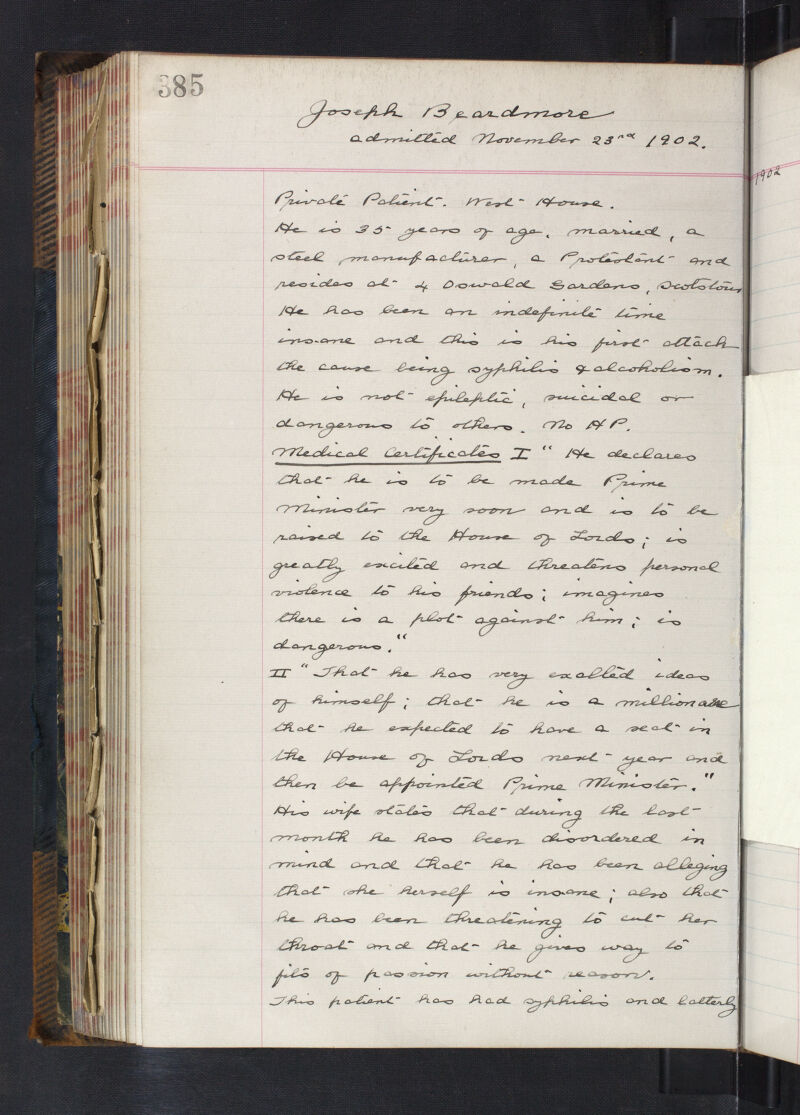 385
Joseph Beardmore
admitted November 23rd 1902.
1902
Private Patient. West House.
He is 35 years of age, married, a
steel manufacturer, a Protestant and
resides at 4 Oswald Gardens, Scotstoun
He has been an indefinite time
insane and this is his first attack
the cause being syphilis & alcoholism.
He is not epileptic, suicidal or
dangerous to others. No HP.
Medical Certificates I " He declares
that he is to be made Prime
Minister very soon and is to be
raised to the House of Lords; is
greatly excited and threatens personal
violence to his friends; imagines
there is a plot against him; is
dangerous."
II " That he has very exalted ideas
of himself; that he is a millionaire
that he expected to have a seat in
the House of Lords next year and
then be appointed Prime Minister."
His wife states that during the last
month he has been disordered in
mind and that he has been alleging
that she herself is insane; also that
he has been threatening to cut her
throat and that he gives way to
fits of passion without reason.
This patient has had syphilis and latterly